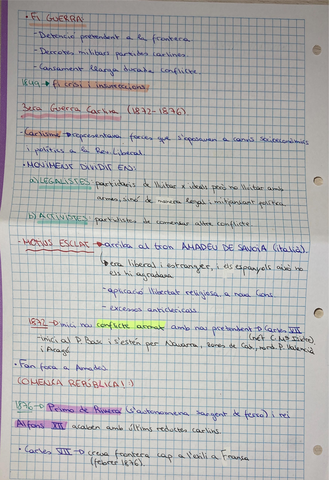 · FI GUERRA:
- Detenció pretendent a la frontera
- Derrotes militars partides carlines.
- Cansament llarga durada conflicte.
1849 → fi crisi i insurreccions.
3era Guerra Carlina (1872-1876).
· Carlisme → representava forces que s'oposaven a canvis socioeconòmics
i polítics a la Rev. Liberal
· MOVIMENT DIVIDIT EN:
a) LEGALISTES: partidaris de lluitar x ideals però no lluitar amb
armes, sinó de manera legal i mitjançant política
b) ACTIVISTES: partidistes de començar altre conflicte.
· MOTIUS ESCLAT → arriba al tron AMADEU DE SAVOIA (italià).
→ era liberal i estranger, i els espanyols això no
els hi agradava
- aplicació llibertat religiosa, a nova
- excessos anticlericals
1872 → inici nou conflicte armat amb nou pretendent → Carles VII
(nét. C. Mª Isidre)
inici al P. Basc i s'estén per Navarra, zones de Cat, nord P. Valencià
i Aragó
· Fan fora a Amadeo
COMENÇA REPÚBLICA!!
1876 → Primo de Rivera (s'autonomena sargent de ferro) i rei
Alfons XII acaben amb últims reductes carlins.
· Carles VII → creua frontera cap a l'exili a França
(febrer 1876).